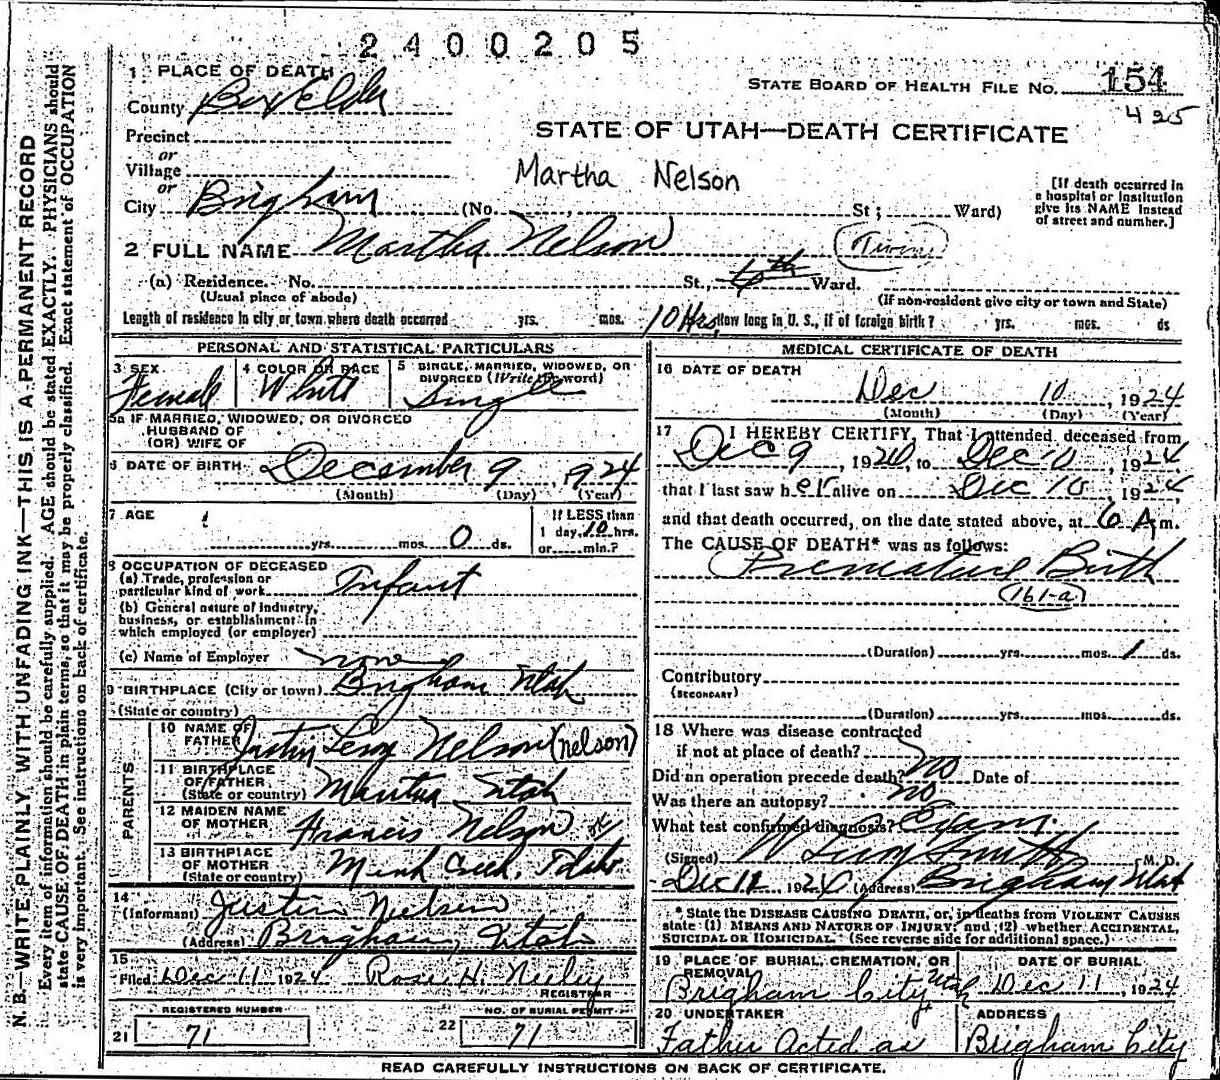 2400205
1 PLACE OF DEATH
STATE BOARD OF HEALTH FILE NO. 154
County Box Elder
425
Precinct
STATE OF UTAH—DEATH CERTIFICATE
or
Village
Martha Nelson
or
City Brigham (No. St ; Ward)
[If death occurred in
a hospital or institution
give its NAME instead
of street and number.]
2 FULL NAME Martha Nelson (Twin)
(a) Residence. No. St., 6th Ward.
(Usual place of abode) (If non-resident give city or town and State)
Length of residence in city or town where death occurred yrs. mos. 10 Hrs. How long in U. S., if of foreign birth? yrs. mos. ds
PERSONAL AND STATISTICAL PARTICULARS
3 SEX 4 COLOR OR RACE 5 SINGLE, MARRIED, WIDOWED, OR
DIVORCED (Write the word)
Female White Single
5a IF MARRIED, WIDOWED, OR DIVORCED
HUSBAND OF
(OR) WIFE OF
6 DATE OF BIRTH December 9 1924
(Month) (Day) (Year)
7 AGE If LESS than
1 day, 10 hrs.
yrs. mos. 0 ds. or min.?
8 OCCUPATION OF DECEASED
(a) Trade, profession or
particular kind of work Infant
(b) General nature of industry,
business, or establishment in
which employed (or employer)
(c) Name of Employer none
9 BIRTHPLACE (City or town) Brigham Utah
(State or country)
PARENTS
10 NAME OF
FATHER Justin Leroy Nelson (nelson)
11 BIRTHPLACE
OF FATHER
(State or country) Mantua Utah
12 MAIDEN NAME
OF MOTHER Francis Nelson
13 BIRTHPLACE
OF MOTHER
(State or country) Mink Creek, Idaho
14
(Informant) Justin Nielsen
(Address) Brigham, Utah
15
Filed Dec 11 1924
REGISTRAR
REGISTERED NUMBER NO. OF BURIAL PERMIT
21 71 22 71
MEDICAL CERTIFICATE OF DEATH
16 DATE OF DEATH
Dec 10, 1924
(Month) (Day) (Year)
17 I HEREBY CERTIFY, That I attended deceased from
Dec 9, 1924, to Dec 10, 1924
that I last saw her alive on Dec 10, 1924
and that death occurred, on the date stated above, at 6 A m.
The CAUSE OF DEATH* was as follows:
Premature Birth
(161-a)
(Duration) yrs. mos. 1 ds.
Contributory
(SECONDARY)
(Duration) yrs. mos. ds.
18 Where was disease contracted
if not at place of death?
Did an operation precede death? no Date of
Was there an autopsy? no
What test confirmed diagnosis? Exam.
(Signed) W Leroy Smith M. D.
Dec 11 1924 (Address) Brigham Utah
* State the DISEASE CAUSING DEATH, or, in deaths from VIOLENT CAUSES
state (1) MEANS AND NATURE OF INJURY; and (2) whether ACCIDENTAL,
SUICIDAL OR HOMICIDAL. (See reverse side for additional space.)
19 PLACE OF BURIAL, CREMATION, OR
REMOVAL DATE OF BURIAL
Brigham City Utah Dec 11, 1924
20 UNDERTAKER ADDRESS
Father Acted as Brigham City
READ CAREFULLY INSTRUCTIONS ON BACK OF CERTIFICATE.
N. B.—WRITE PLAINLY, WITH UNFADING INK—THIS IS A PERMANENT RECORD
Every item of information should be carefully supplied. AGE should be stated EXACTLY. PHYSICIANS should
state CAUSE OF DEATH in plain terms, so that it may be properly classified. Exact statement of OCCUPATION
is very important. See instructions on back of certificate.